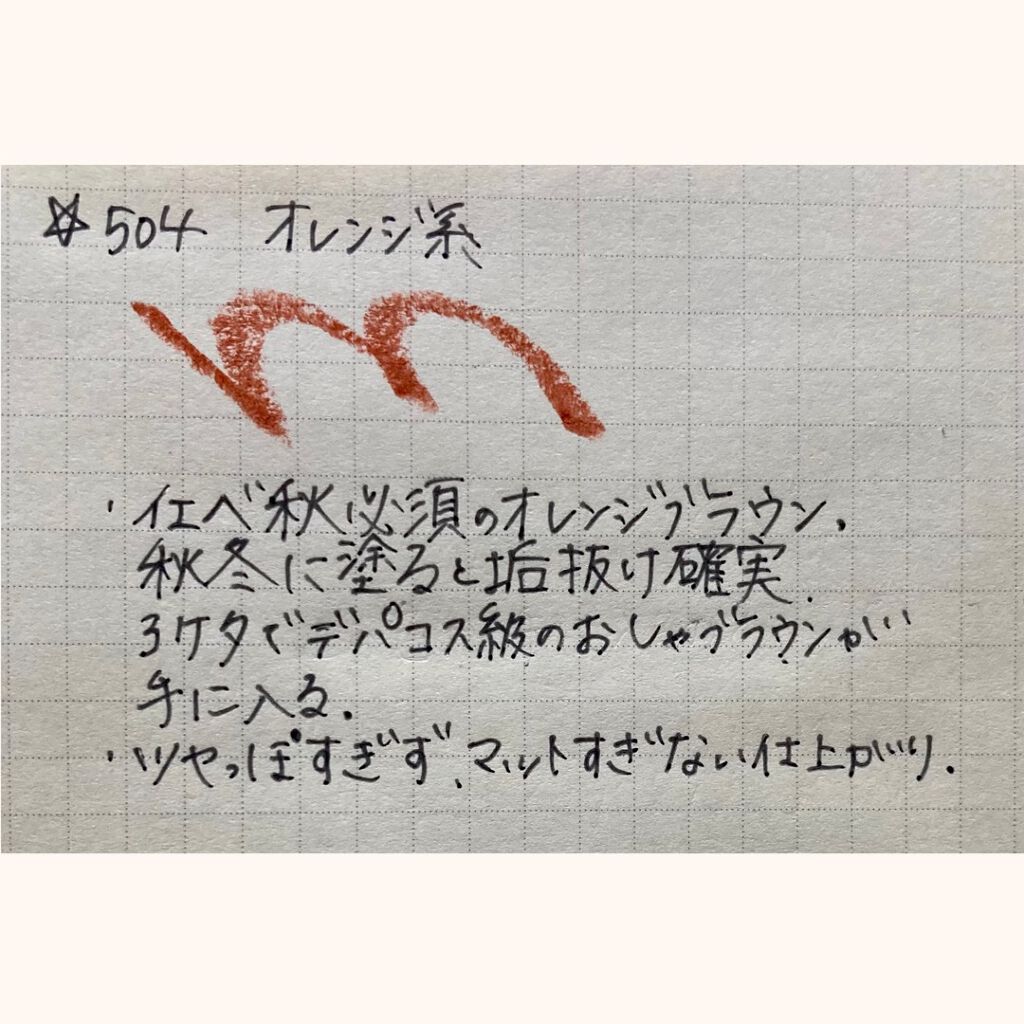 ☆504 オレンジ系
・イエベ秋必須のオレンジブラウン.
秋冬に塗ると垢抜け確実.
3ケタでデパコス級のおしゃブラウンが
手に入る.
・ツヤっぽすぎず、マットすぎない仕上がり.